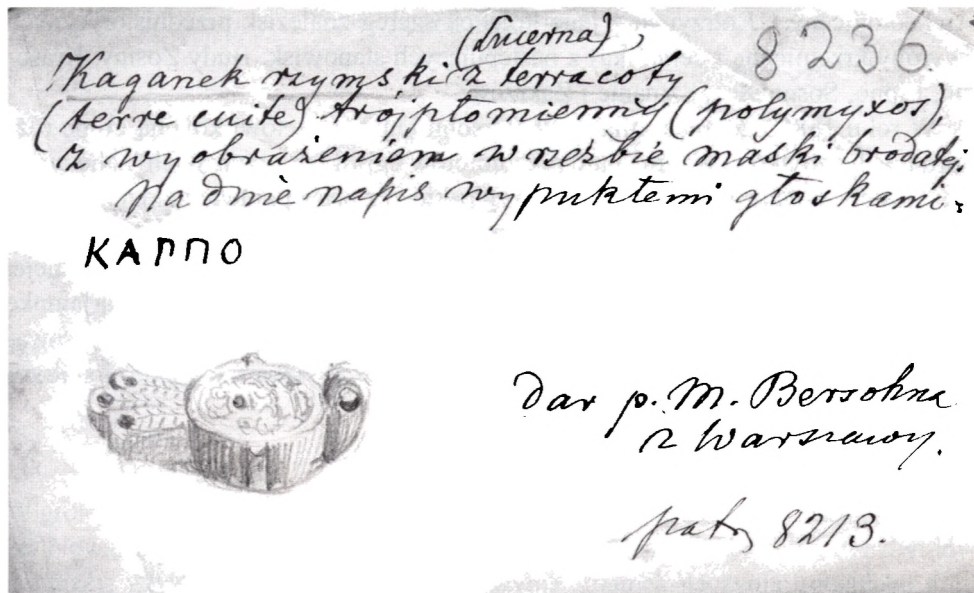 (Lucerna) 8236
Kaganek rzymski z terracoty
(terre cuite) trójpłomienny (polymyxos),
z wyobrażeniem w rzeźbie maski brodatej.
Na dnie napis wypukłemi głoskami.
ΚΑΠΠΟ
dar p. M. Bersohna
z Warszawy.
patrz 8213.